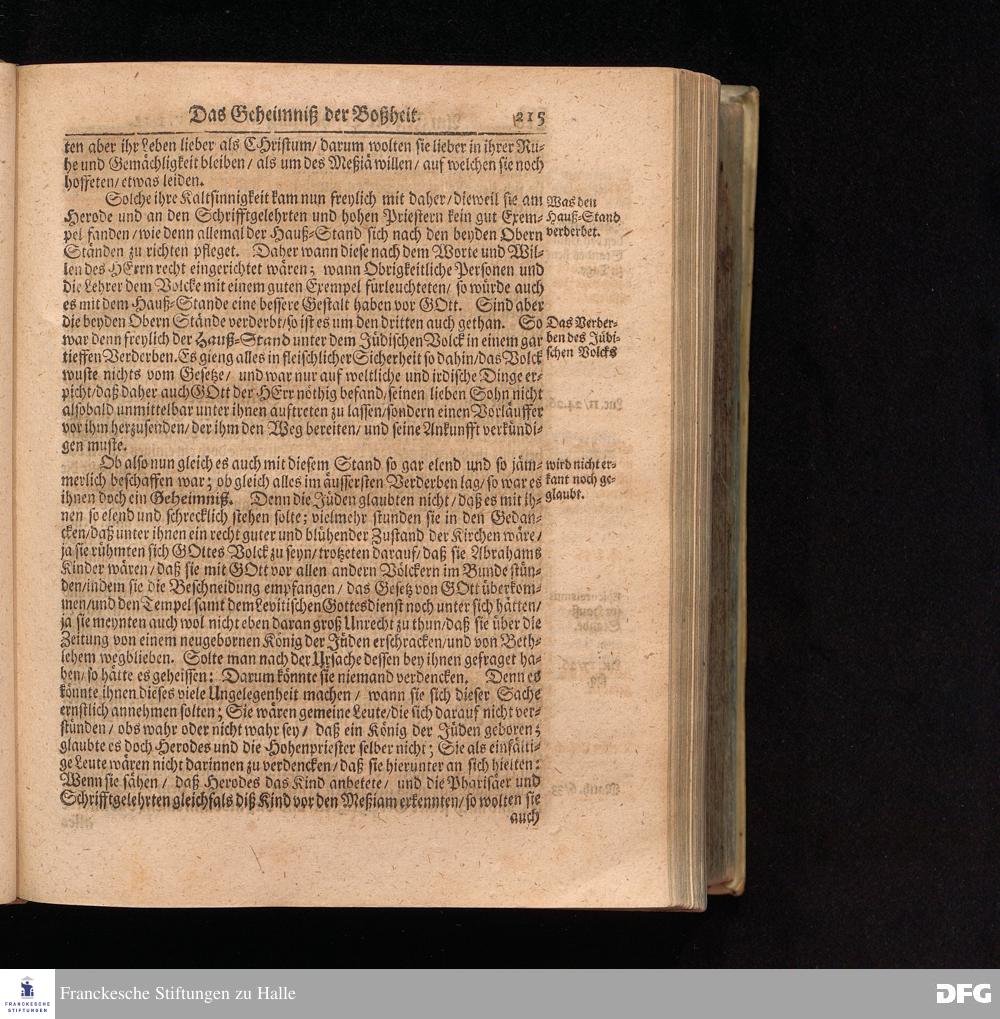 Das Geheimniß der Boßheit. 215
ten aber ihr Leben lieber als CHristum/ darum wolten sie lieber in ihrer Ru-
he und Gemächligkeit bleiben/ als um des Meßiä willen/ auf welchen sie noch
hoffeten/ etwas leiden.
Solche ihre Kaltsinnigkeit kam nun freylich mit daher/ dieweil sie am
Herode und an den Schrifftgelehrten und hohen Priestern kein gut Exem-
pel fanden/ wie denn allemal der Hauß-Stand sich nach den beyden Obern
Ständen zu richten pfleget. Daher wann diese nach dem Worte und Wil-
len des HErrn recht eingerichtet wären; wann Obrigkeitliche Personen und
die Lehrer dem Volcke mit einem guten Exempel fürleuchteten/ so würde auch
es mit dem Hauß-Stande eine bessere Gestalt haben vor GOtt. Sind aber
die beyden Obern Stände verderbt/ so ist es um den dritten auch gethan. So
war denn freylich der Hauß-Stand unter dem Jüdischen Volck in einem gar
tieffen Verderben. Es gieng alles in fleischlicher Sicherheit so dahin/ das Volck
wuste nichts vom Gesetze/ und war nur auf weltliche und irdische Dinge er-
picht/ daß daher auch GOtt der HErr nöthig befand/ seinen lieben Sohn nicht
alsobald unmittelbar unter ihnen auftreten zu lassen/ sondern einen Vorläuffer
vor ihm herzusenden/ der ihm den Weg bereiten/ und seine Ankunfft verkündi-
gen muste.
Ob also nun gleich es auch mit diesem Stand so gar elend und so jäm-
merlich beschaffen war; ob gleich alles im äussersten Verderben lag/ so war es
ihnen doch ein Geheimniß. Denn die Jüden glaubten nicht/ daß es mit ih-
nen so elend und schrecklich stehen solte; vielmehr stunden sie in den Gedan-
cken/ daß unter ihnen ein recht guter und blühender Zustand der Kirchen wäre/
ja sie rühmten sich GOttes Volck zu seyn/ trotzeten darauf/ daß sie Abrahams
Kinder wären/ daß sie mit GOtt vor allen andern Völckern im Bunde stün-
den/ indem sie die Beschneidung empfangen/ das Gesetz von GOtt überkom-
men/ und den Tempel samt dem Levitischen Gottesdienst noch unter sich hätten/
ja sie meynten auch wol nicht eben daran groß Unrecht zu thun/ daß sie über die
Zeitung von einem neugebornen König der Jüden erschracken/ und von Beth-
lehem wegblieben. Solte man nach der Ursache dessen bey ihnen gefraget ha-
ben/ so hätte es geheissen: Darum könnte sie niemand verdencken. Denn es
könnte ihnen dieses viele Ungelegenheit machen/ wann sie sich dieser Sache
ernstlich annehmen solten; Sie wären gemeine Leute/ die sich darauf nicht ver-
stünden/ obs wahr oder nicht wahr sey/ daß ein König der Jüden geboren;
glaubte es doch Herodes und die Hohenpriester selber nicht; Sie als einfälti-
ge Leute wären nicht darinnen zu verdencken/ daß sie hierunter an sich hielten:
Wenn sie sähen/ daß Herodes das Kind anbetete/ und die Pharisäer und
Schrifftgelehrten gleichfals diß Kind vor den Meßiam erkennten/ so wolten sie
auch
Was den
Hauß-Stand
verderbet.
Das Verder-
ben des Jüdi-
schen Volcks
wird nicht er-
kant noch ge-
glaubt.
FRANCKESCHE
STIFTUNGEN
Franckesche Stiftungen zu Halle
DFG